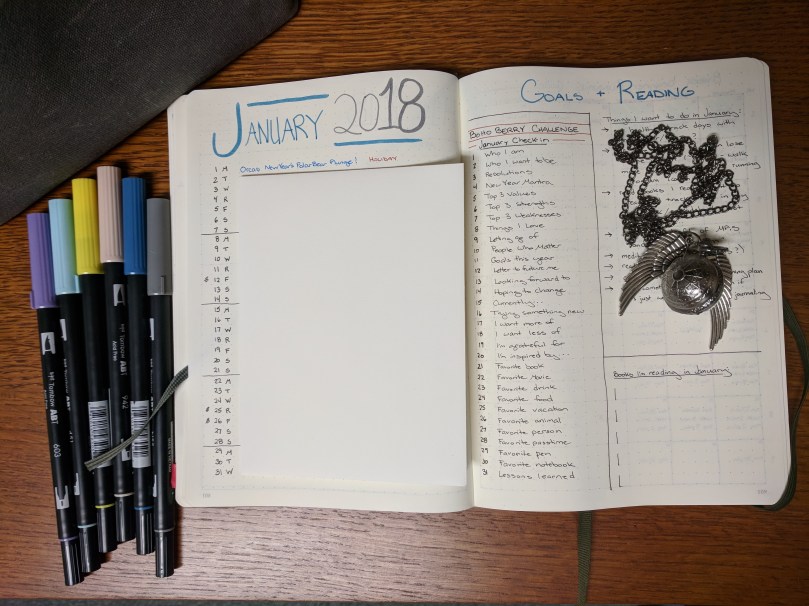 JANUARY 2018
1 M Orcas New York Polar Bear Plunge! HOLIDAY
2 T
3 W
4 R
5 F
6 S
7 S
8 M
9 T
10 W
11 R
$ 12 F
13 S
14 S
15 M
16 T
17 W
18 R
19 F
20 S
21 S
22 M
23 T
24 W
$ 25 R
$ 26 F
27 S
28 S
29 M
30 T
31 W
GOALS + READING
BOHO BERRY CHALLENGE
January Check in
1 Who I am
2 Who I want to be
3 Resolutions
4 New Year Mantra
5 Top 3 Values
6 Top 3 Strengths
7 Top 3 Weaknesses
8 Things I Love
9 Letting go of
10 People Who Matter
11 Goals this year
12 Letter to future me
13 Looking forward to
14 Hoping to change
15 Currently...
16 Trying something new
17 I want more of
18 I want less of
19 I'm grateful for
20 I'm inspired by...
21 Favorite book
22 Favorite Movie
23 Favorite drink
24 Favorite food
25 Favorite vacation
26 Favorite animal
27 Favorite person
28 Favorite passtime
29 Favorite pen
30 Favorite notebook
31 Lessons learned
Things I want to do in January:
track days with
lose
walks
running
I
in
of
plan
if
just journaling
Books I'm reading in January
ABT
603
942
ABT